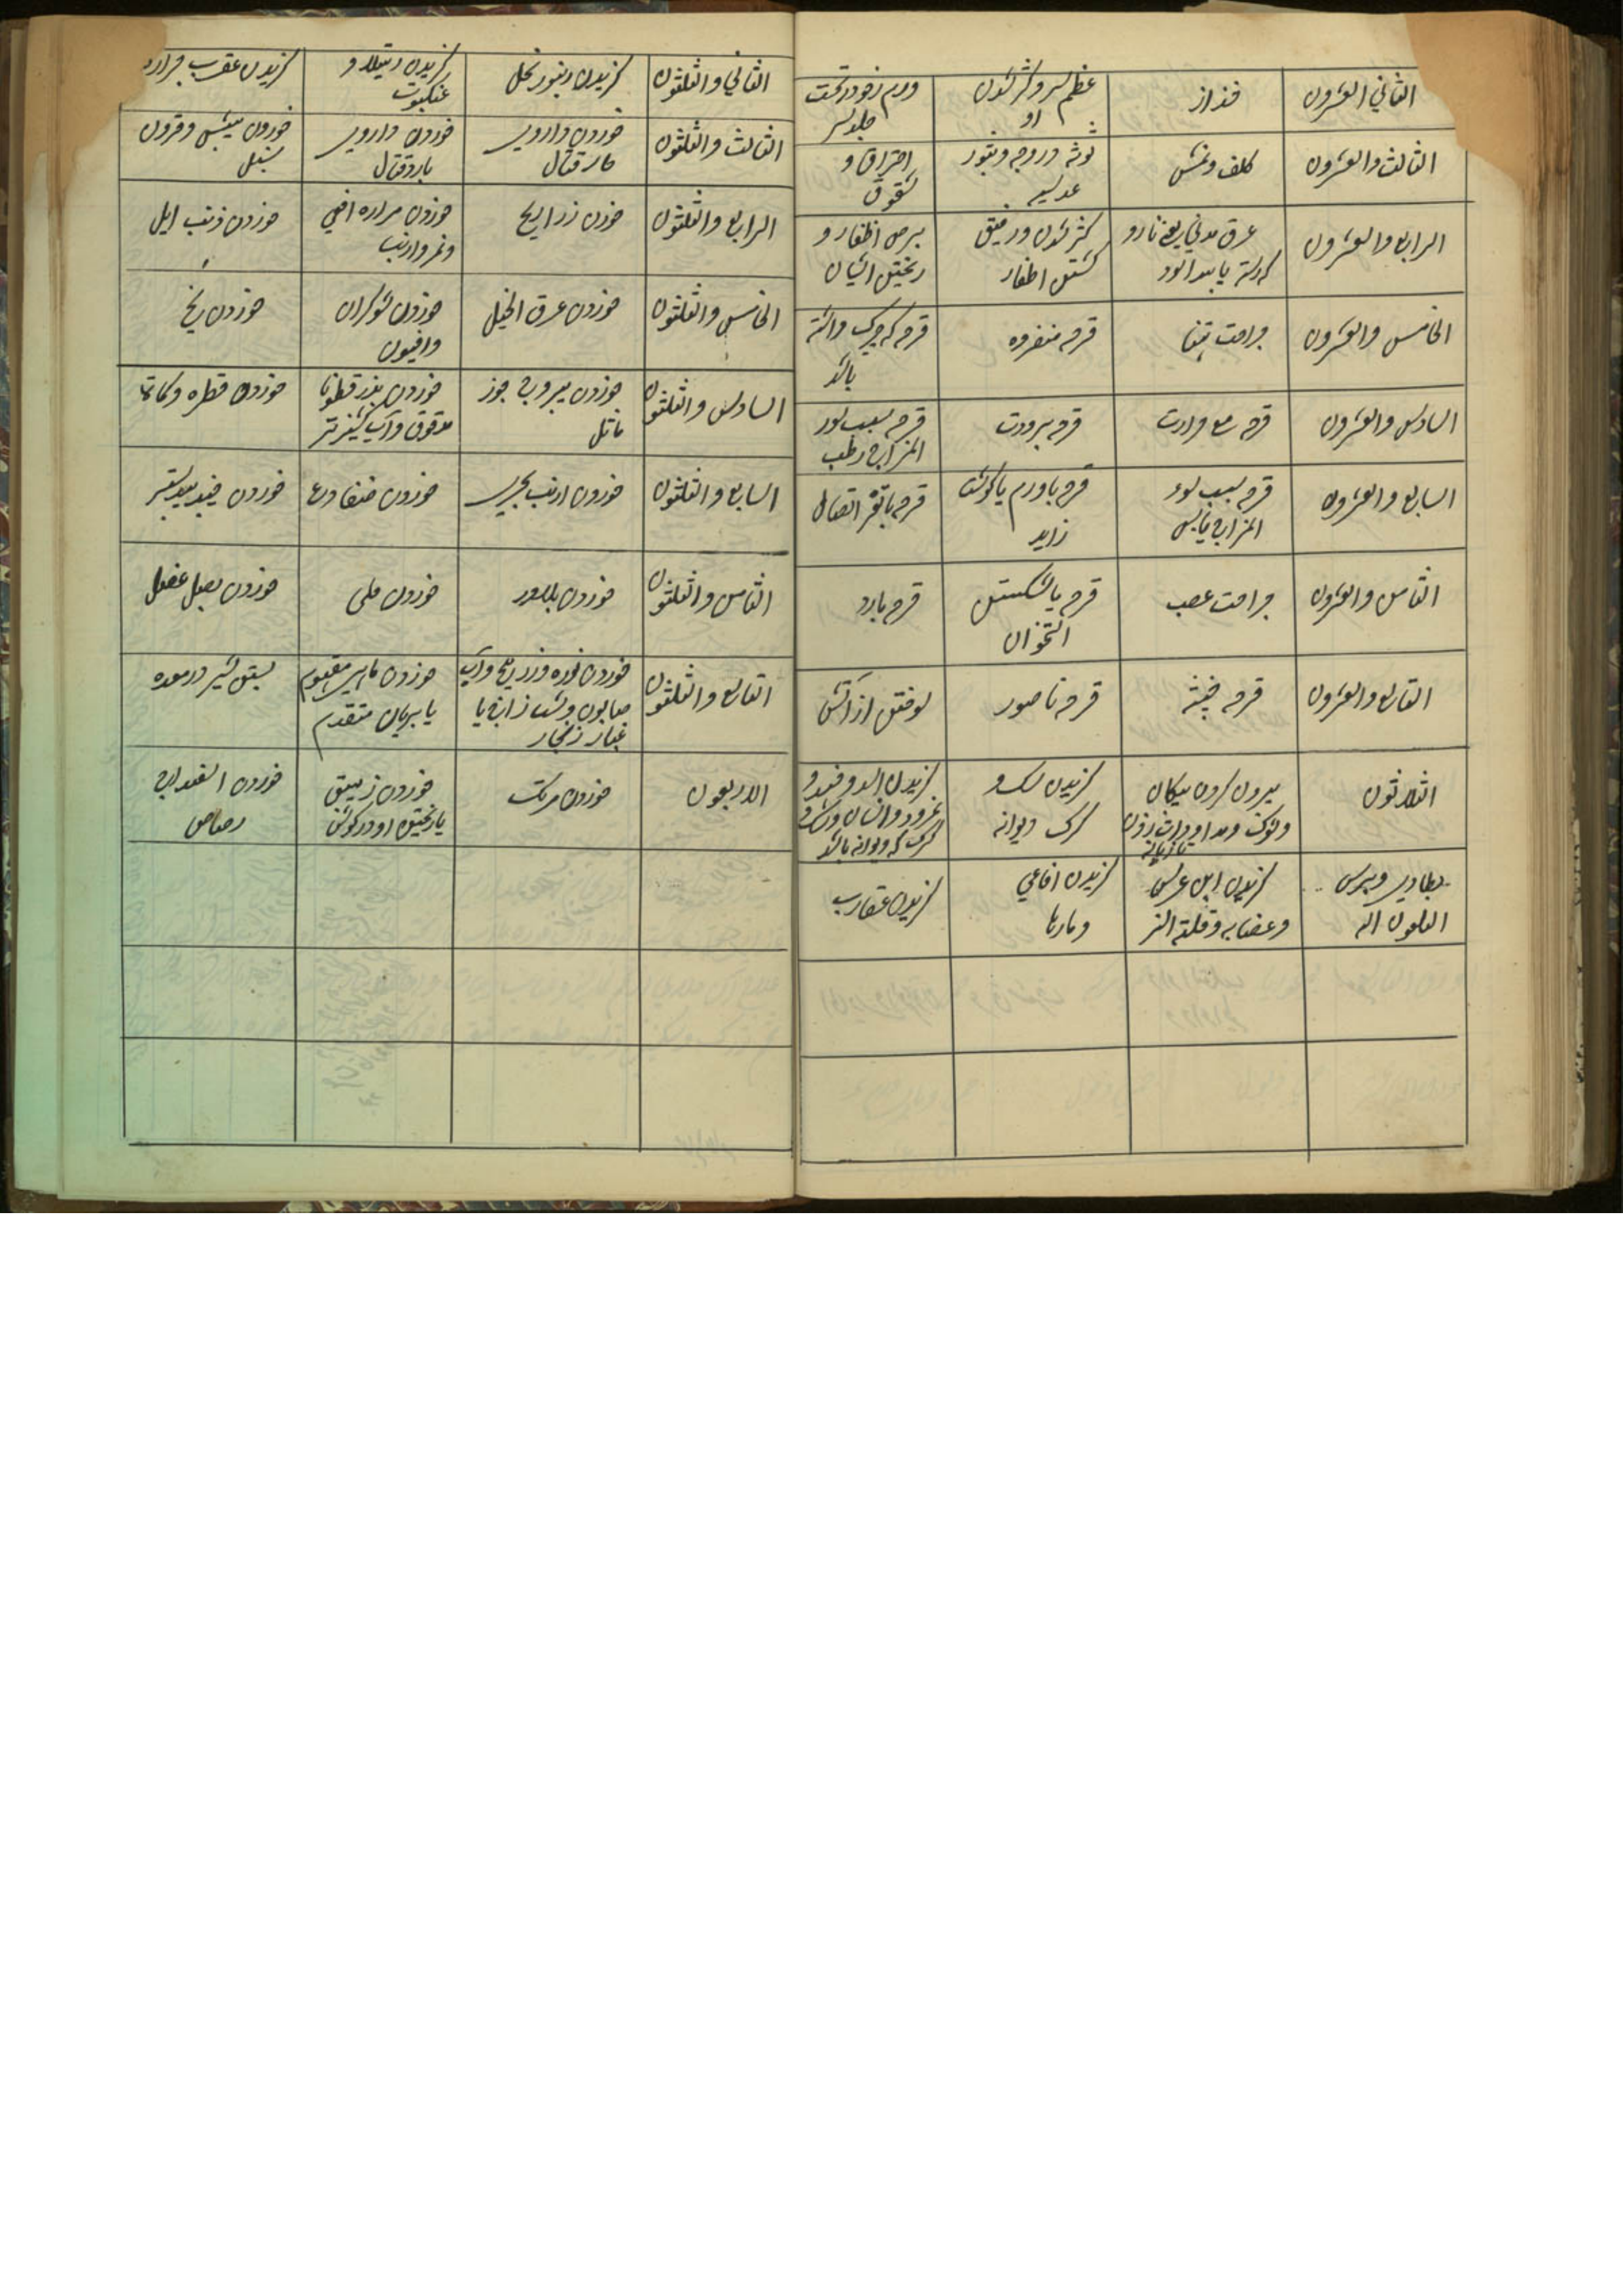 الثاني العشرون
حزاز
عظم سر و کژ شدن
او
ورم رخو در تحت
جلد سر
الثالث والعشرون
کلف و نمش
توثه و روجه و بثور
عدسیه
احتراق و
شقوق
الرابع والعشرون
عرق مدنی یعنی نارو
که رشته یا پیدا بود
کژ شدن و رقیق
گشتن اظفار
برص اظفار و
ریختن ایشان
الخامس والعشرون
جراحت تنها
قرحه منفرده
قرحه که چرک داشته
باشد
السادس والعشرون
قرحه مع حرارت
قرحه برودت
قرحه بسبب سوء
المزاج رطب
السابع والعشرون
قرحه بسبب سوء
المزاج یابس
قرحه با ورم یا گوشت
زاید
قرحه با تفرق اتصال
الثامن والعشرون
جراحت عصب
قرحه با شکستن
استخوان
قرحه بارد
التاسع والعشرون
قرحه خبیثه
قرحه ناصور
سوختن از آتش
الثلاثون
بیرون کردن پیکان
گزیدن سگ و
گرگ دیوانه
گزیدن اسد و فهد و
گرگ که دیوانه باشد
گزیدن ابن عرس
و عضایه و قملة النسر
گزیدن افاعی
و مارها
گزیدن عقارب
الثاني والثلثون
گزیدن زنبور نحل
گزیدن رتیلا و
عنکبوت
گزیدن عقرب جراره
الثالث والثلثون
خوردن داروی
حار قتال
خوردن داروی
بارد قتال
خوردن بیش و قرون
سنبل
الرابع والثلثون
خوردن ذراریح
خوردن مراره افعی
و نمر و ارنب
خوردن ذنب ایل
الخامس والثلثون
خوردن عرق الخیل
خوردن شوکران
و افیون
خوردن بنج
السادس والثلثون
خوردن یبروج جوز
ماثل
خوردن بذر قطونا
مدقوق و آب گشنیز تر
خوردن فطر و کماة
السابع والثلثون
خوردن ارنب بحری
خوردن ضفادع
خوردن جندبیدستر
الثامن والثلثون
خوردن بلادر
خوردن دفلی
خوردن بصل عنصل
التاسع والثلثون
خوردن نوره و زرنیخ و آب
صابون و شب زاج یا
غبار زنجار
خوردن ماهی مغموم
یا بریان متقدم
بستن شیر در معده
الاربعون
خوردن مرتک
خوردن زیبق
یا ریختن او در گوش
خوردن اسفیداج
رصاص